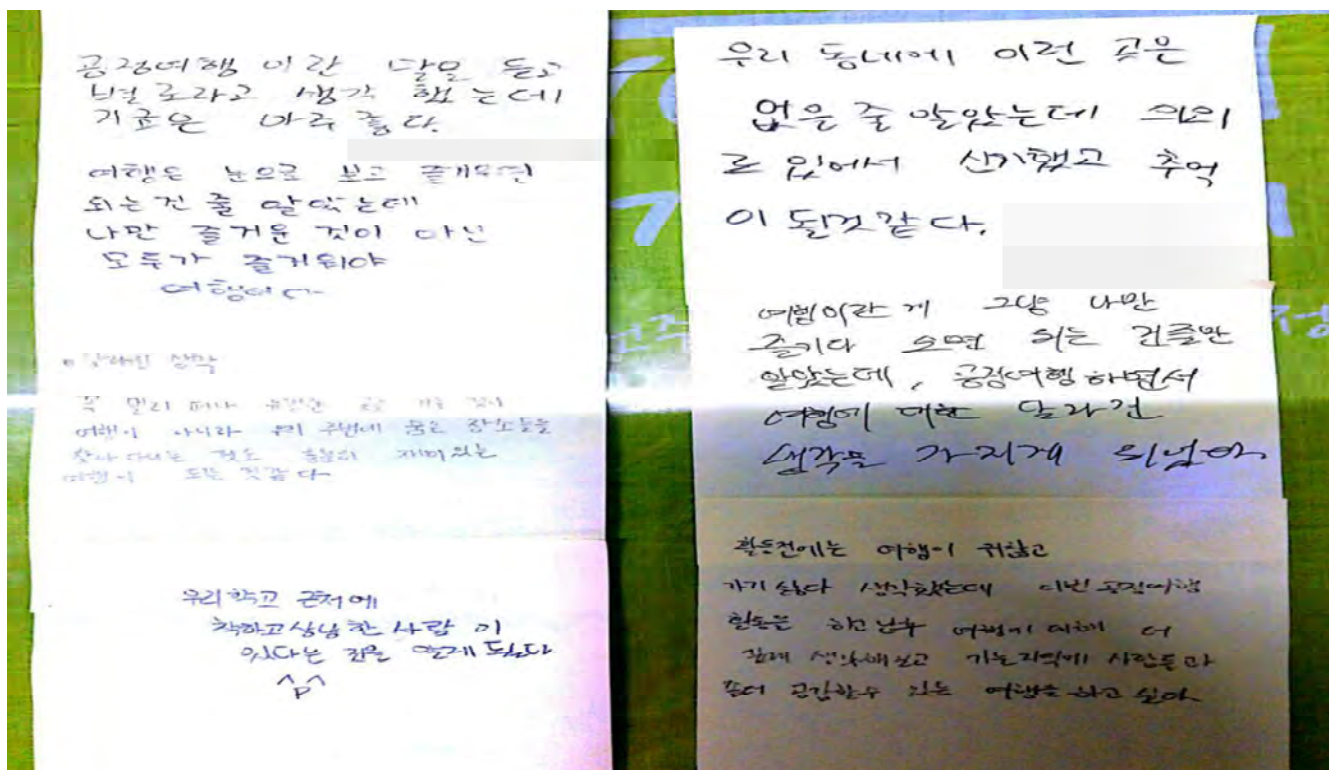 공정여행 이란 말을 듣고
별로라고 생각 했는데
기분은 아주 좋다.
여행은 눈으로 보고 즐거우면
되는건 줄 알았는데
나만 즐거운 것이 아닌
모두가 즐거워야
여행이다
생각
꼭 멀리 떠나 유명한 곳을 가는 것이
여행이 아니라 우리 주변에 숨은 장소들을
찾아 다니는 것도 충분히 재미있는
여행이 되는 것같다
우리학교 근처에
착하고상냥한 사람 이
있다는 것을 알게 됬다
우리 동네에 이런 곳은
없을 줄 알았는데 의외
로 있어서 신기했고 추억
이 될것 같다.
여행이란 게 그냥 나만
즐기다 오면 되는 건줄만
알았는데, 공정여행 하면서
여행에 대한 달라진
생각을 가지게 되었다
활동전에는 여행이 귀찮고
가기 싫다 생각했는데 이번 공정여행
활동을 하고난후 여행에 대해 더
깊게 생각해보고 가는지역에 사람들과
좀더 공감할수 있는 여행을 하고 싶다